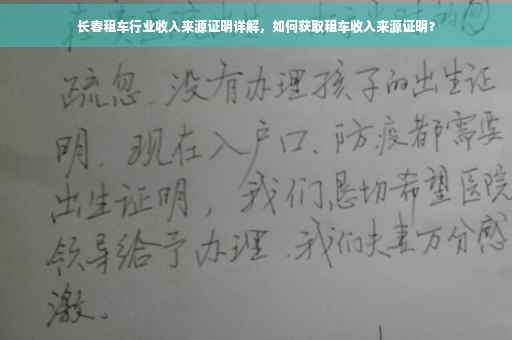 长春租车行业收入来源证明详解，如何获取租车收入来源证明？
疏忽、没有办理孩子的出生证
明、现在入户口、防疫都需要
出生证明，我们恳切希望医院
领导给予办理、我们夫妻万分感
激。